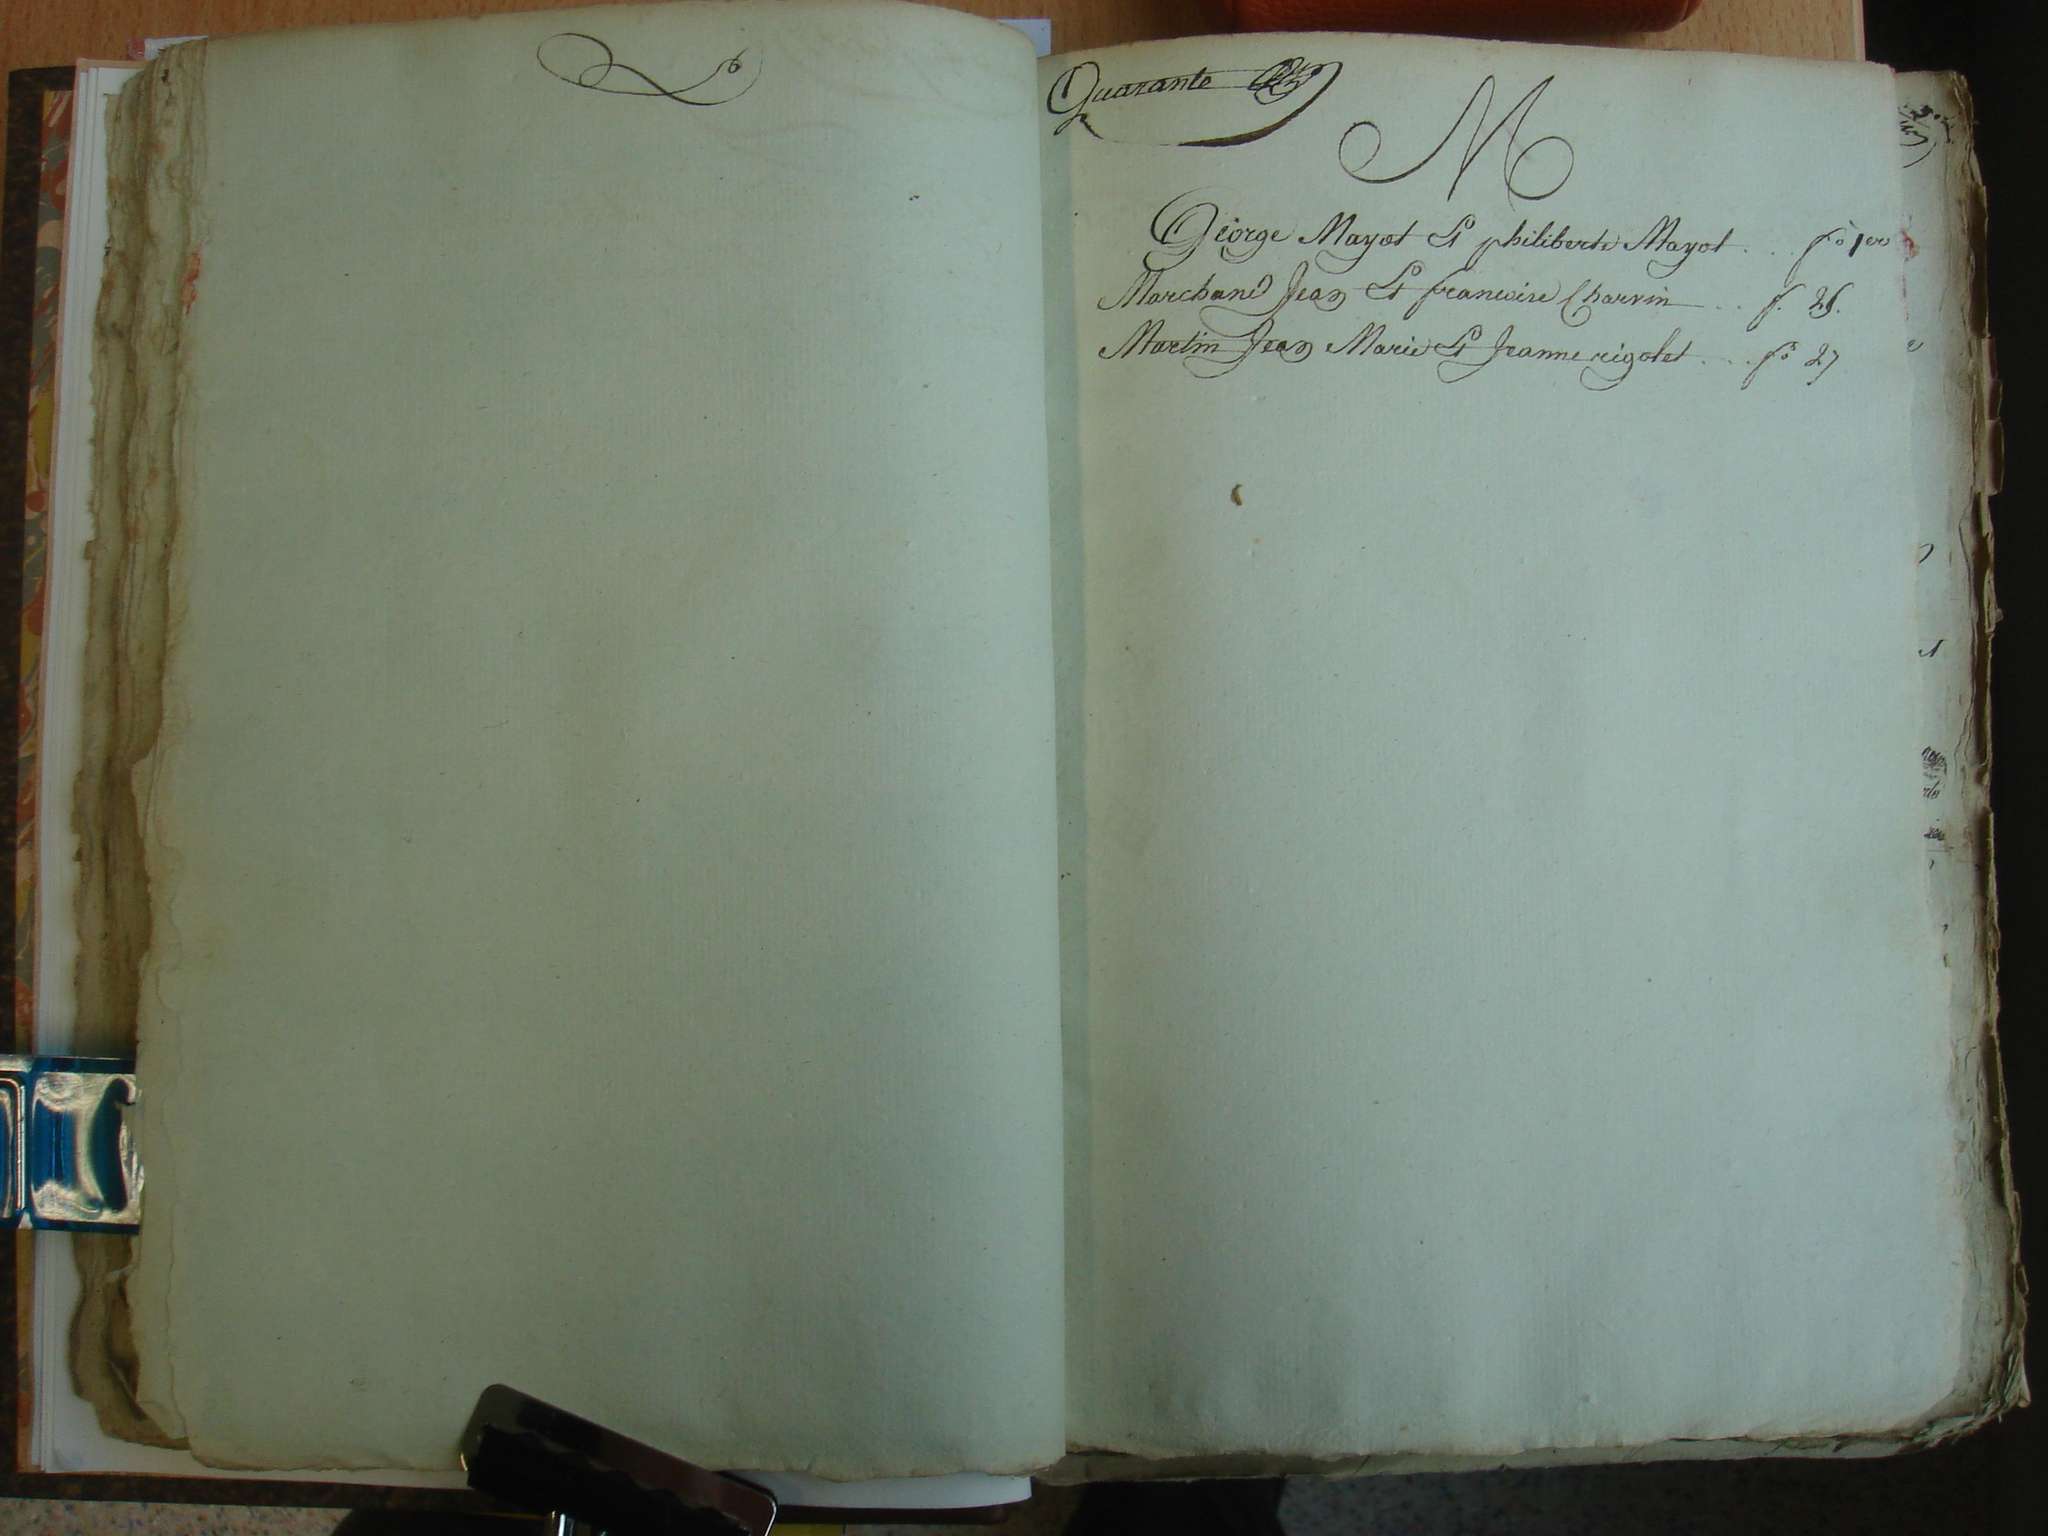 Quarante
M
George Mayot Et philiberte Mayot . . . fo 1er
Marchand Jean Et francoise Charvin . . . f. 26.
Martin Jean Marie Et Jeanne rigolet . . . fo 27